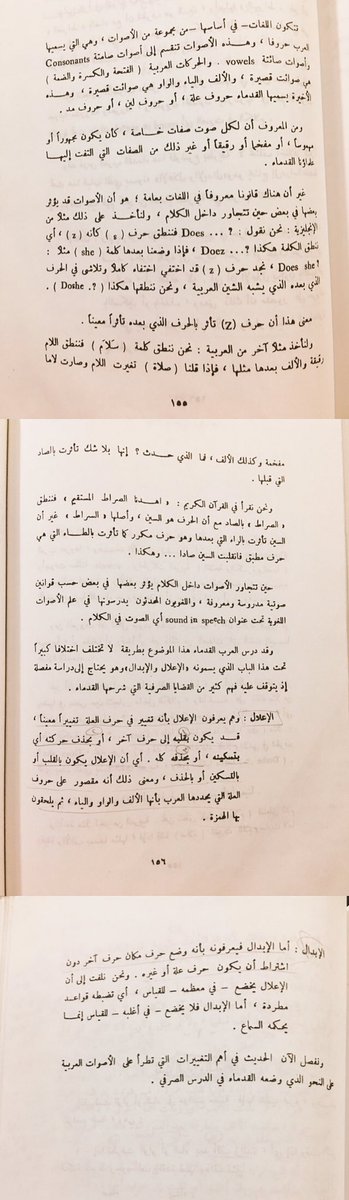 تتكون اللغات - في أساسها - من مجموعة من الأصوات ، وهي التي يسميها
العرب حروفا ، وهـذه الأصوات تنقسم إلى أصوات صامتة Consonants
وأصوات صائتة vowels . والحركات العربية ( الفتحة والكسرة والضمة )
هي صوائت قصيرة ، والألف والياء والواو هي صوائت قصيرة ، وهـذه
الأخيرة يسميها القدماء حروف علة ، أو حروف لين ، أو حروف مد .
ومن المعروف أن لكل صوت صفات خـاصة ، كأن يكون مجهوراً أو
مهموسا ، أو مفخما أو رقيقاً أو غير ذلك من الصفات التي التفت إليهـا
علماؤنا القدماء .
غير أن هناك قانونا معروفاً في اللغات بعامة ؛ هو أن الأصوات قد يؤثر
بعضها في بعض حين تتجاور داخل الكلام ، ولنأخـذ على ذلك مثلا من
الإنجليزية : نحن نقول : ? ... Does فننطق حرف ( s ) كأنه ( z ) ، أي
ننطق الكلمة هكذا ? ... Doez ، فإذا وضعنا بعدها كلمة ( she ) مثلا :
? Does she ، نجد حرف ( z ) قد اختفي اختفاء كاملا وتلاشى في الحرف
الذي بعده الذي يشبه الشين العربية ، ونحن ننطقها هكذا ( ?. Doshe ) .
معنى هذا أن حرف (Z) تأثر بالحرف الذي بعده تأثراً معيناً .
ولنأخذ مثلاً آخر من العربية : نحن ننطق كلمة ( سَلَام ) فننطق اللام
رقيقة والألف بعدها مثلها ، فإذا قلنا ( صلاة ) تغيرت اللام وصارت لاما
١٥٥
مفخمة وكذلك الألف ، فما الذي حدث ؟ إنها بلا شك تأثرت بالصاد
التي قبلها .
ونحن نقرأ في القرآن الكريم : « اهـدنا الصراط المستقيم ، فننطق
« الصراط » بالصاد مع أن الحرف هو السين ، وأصلها « السراط » ، غير أن
السين تأثرت بالراء التي بعدها وهو حرف مكرر كما تأثرت بالطـاء التي هي
حرف مطبق فانقلبت السين صادا ... وهكذا .
حين تتجاور الأصوات داخل الكلام يؤثر بعضها في بعض حسب قوانين
صوتية مدروسة ومعروفة ، واللغويون المحدثون يدرسونها في علم الأصوات
اللغوية تحت عنوان sound in speech أي الصوت في الكلام .
وقد درس العرب القدماء هذا الموضوع بطريقة لا تختلف اختلافا كبيراً
تحت هـذا الباب الذي يسمونه «الإعلال والإبدال»وهو يحتاج إلى دراسة مفصلة
إذ يتوقف عليه فهم كثير من القضايا الصرفية التي شرحها القدماء .
الإعلال : وهم يعرفون الإعلال بأنه تغيير في حرف العلة تغييراً معيناً ،
قد يكون بقلبه إلى حرف آخر ، أو بحذف حركته أي
بتسكينه ، أو بحذفه كله . أي أن الإعلال يكون بالقلب أو
بالتسكين أو بالحذف ، ومعنى ذلك أنه مقصور على حروف
العلة التي يحددها العرب بأنها الألف والواو والياء ، ثم يلحقون
بها الهمزة .
١٥٦
الإبدال : أما الإبدال فيعرفونه بأنه وضع حرف مكان حرف آخر دون
اشتراط أن يكون حرف علة أو غيره . ونحن نلفت إلى أن
الإعلال يخضع - في معظمه - للقياس ، أي تضبطه قواعد
مطردة ، أما الإبدال فلا يخضع - في أغلبه - للقياس إنما
يحكمه السماع .
ونفصل الآن الحديث في أهم التغييرات التي تطرأ على الأصوات العربية
على النحو الذي وضعه القدماء في الدرس الصرفي .